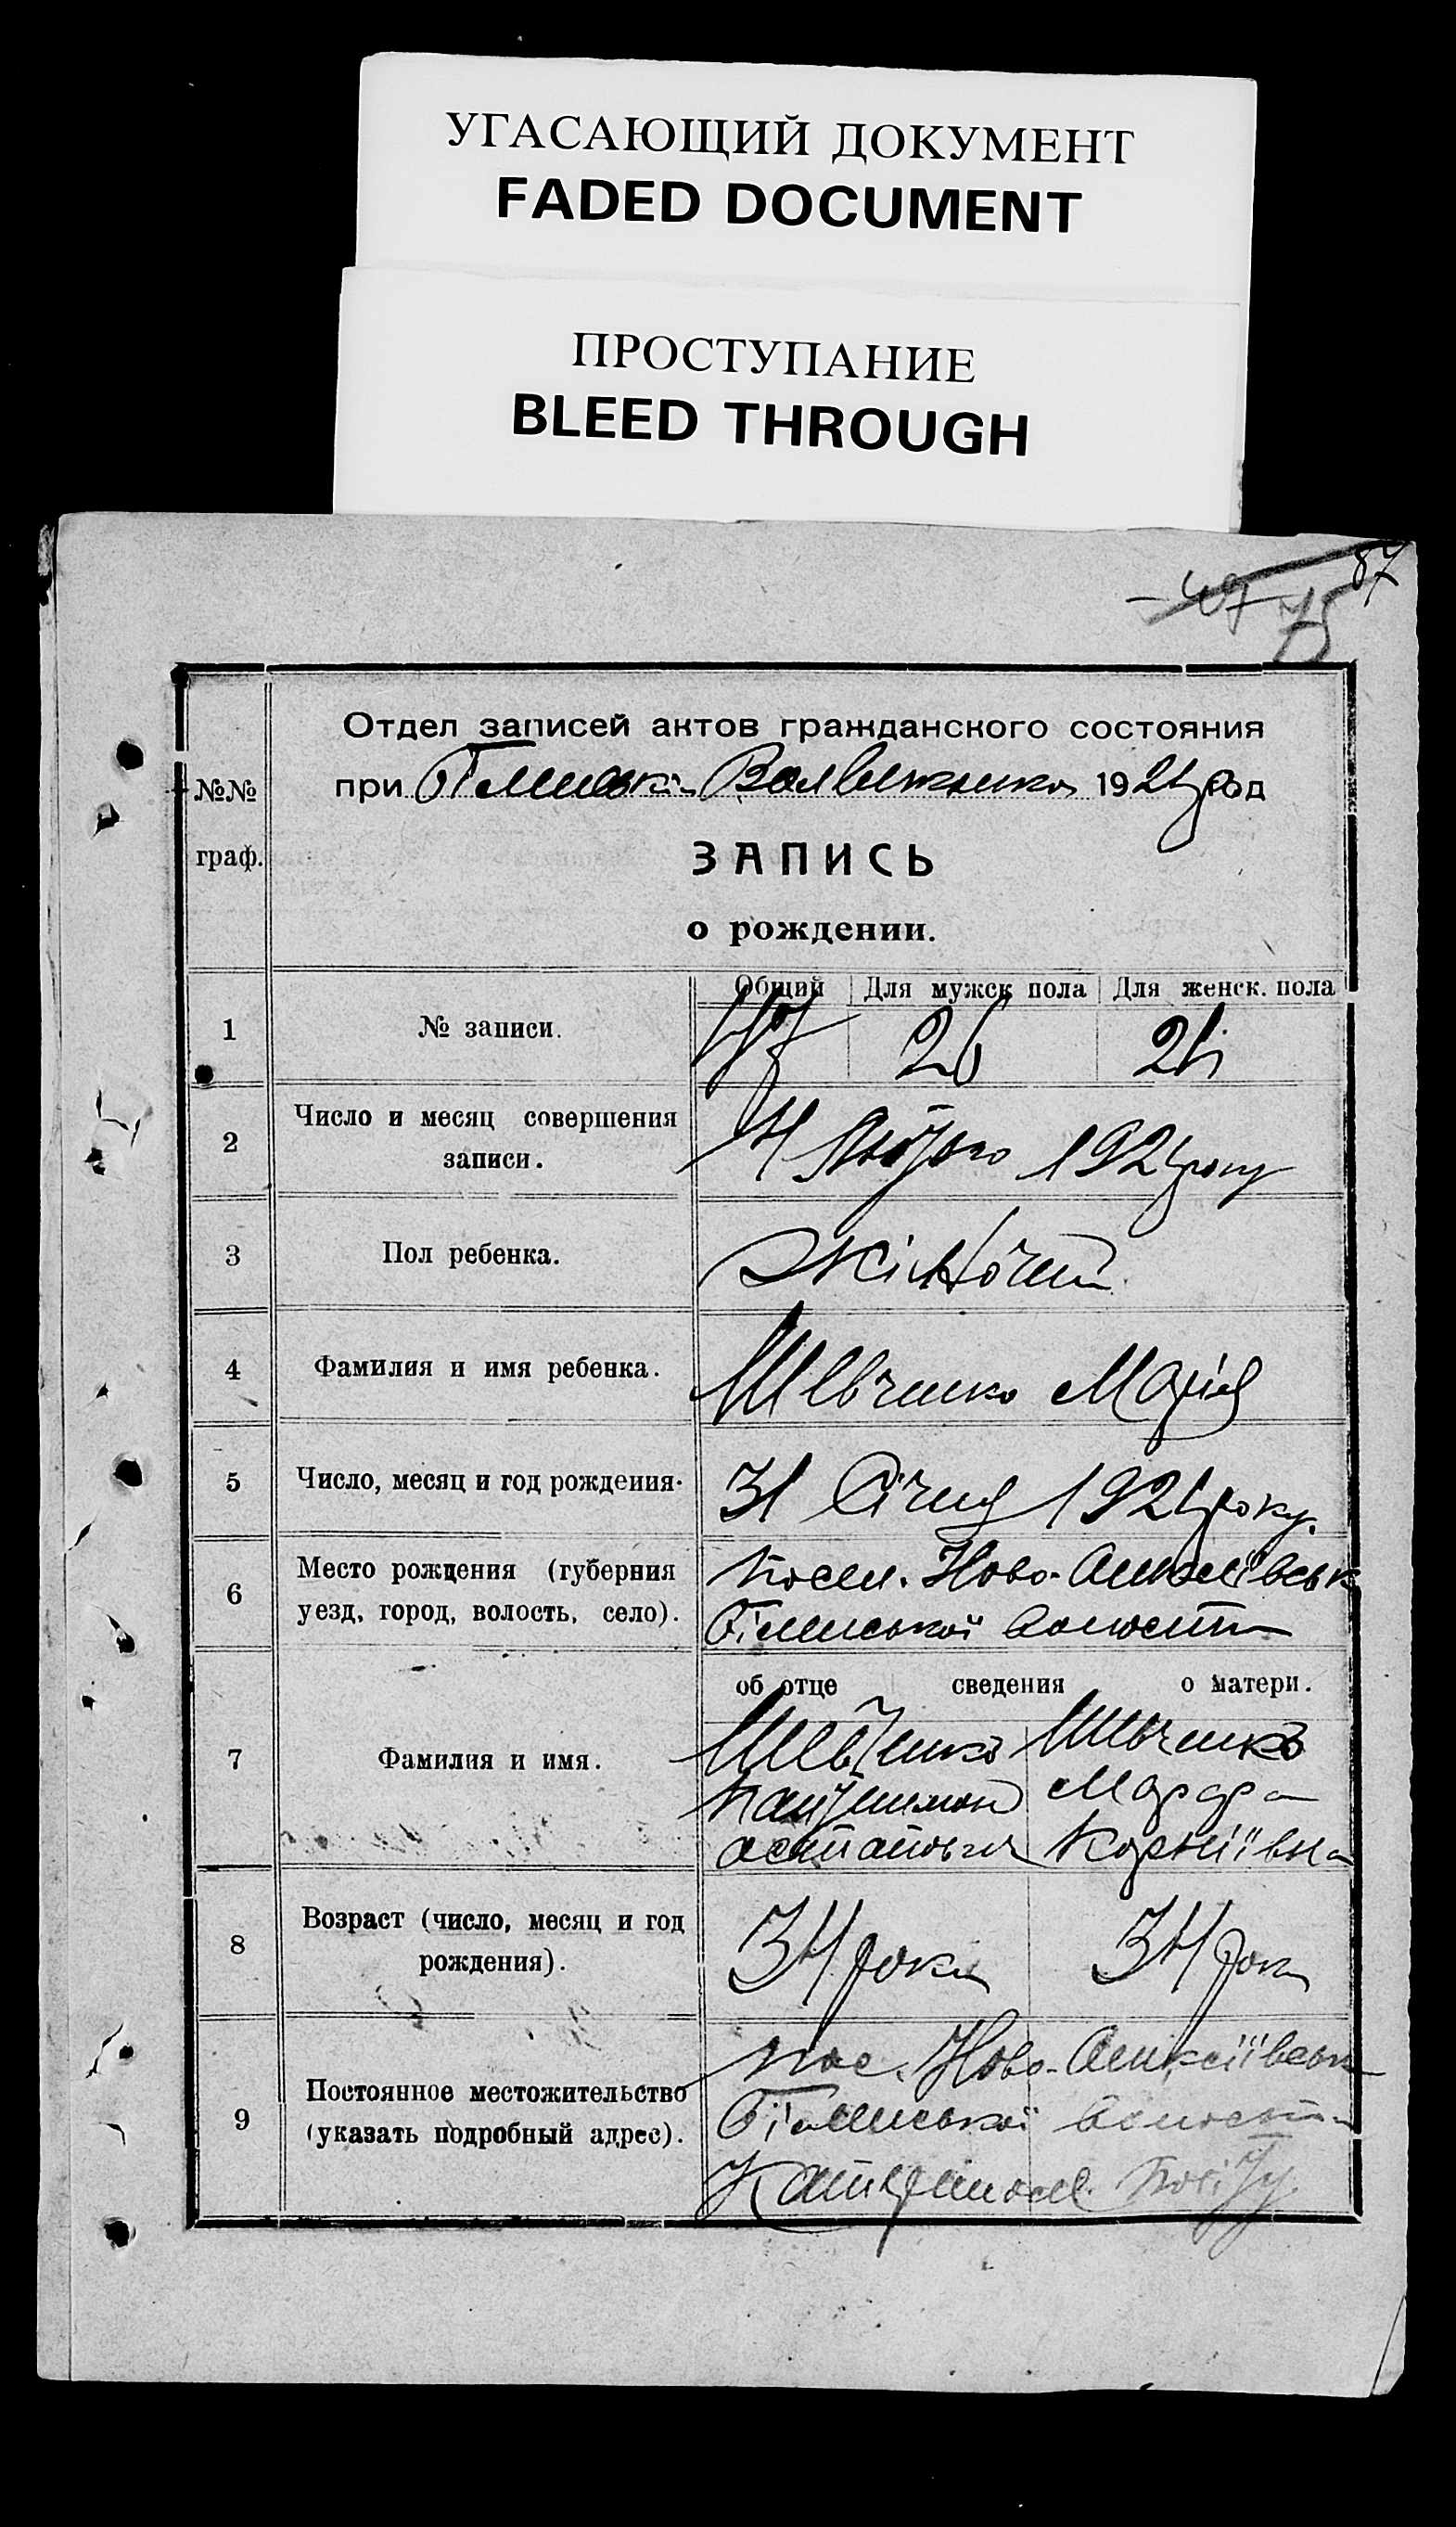 УГАСАЮЩИЙ ДОКУМЕНТ
FADED DOCUMENT
ПРОСТУПАНИЕ
BLEED THROUGH
87
75
Отдел записей актов гражданского состояния
при 1921 год
№№
граф.
ЗАПИСЬ
о рождении.
Общий Для мужск пола Для женск. пола
1 № записи. 47 26 21
2 Число и месяц совершения
записи.
4 Лютого 1921 року
3 Пол ребенка. Жіночий
4 Фамилия и имя ребенка. Шевченко Марія
5 Число, месяц и год рождения. 31 Січня 1921 року.
6 Место рождения (губерния
уезд, город, волость, село).
посел. Ново-Олексіївськ
волости
об отце сведения о матери.
7 Фамилия и имя.
Шевченко Шевченко
Пантилимон
Остапович Корніївна
8 Возраст (число, месяц и год
рождения).
34 роки 34 роки
9 Постоянное местожительство
(указать подробный адрес).
пос. Ново-Олексіївськ
волости
повіту